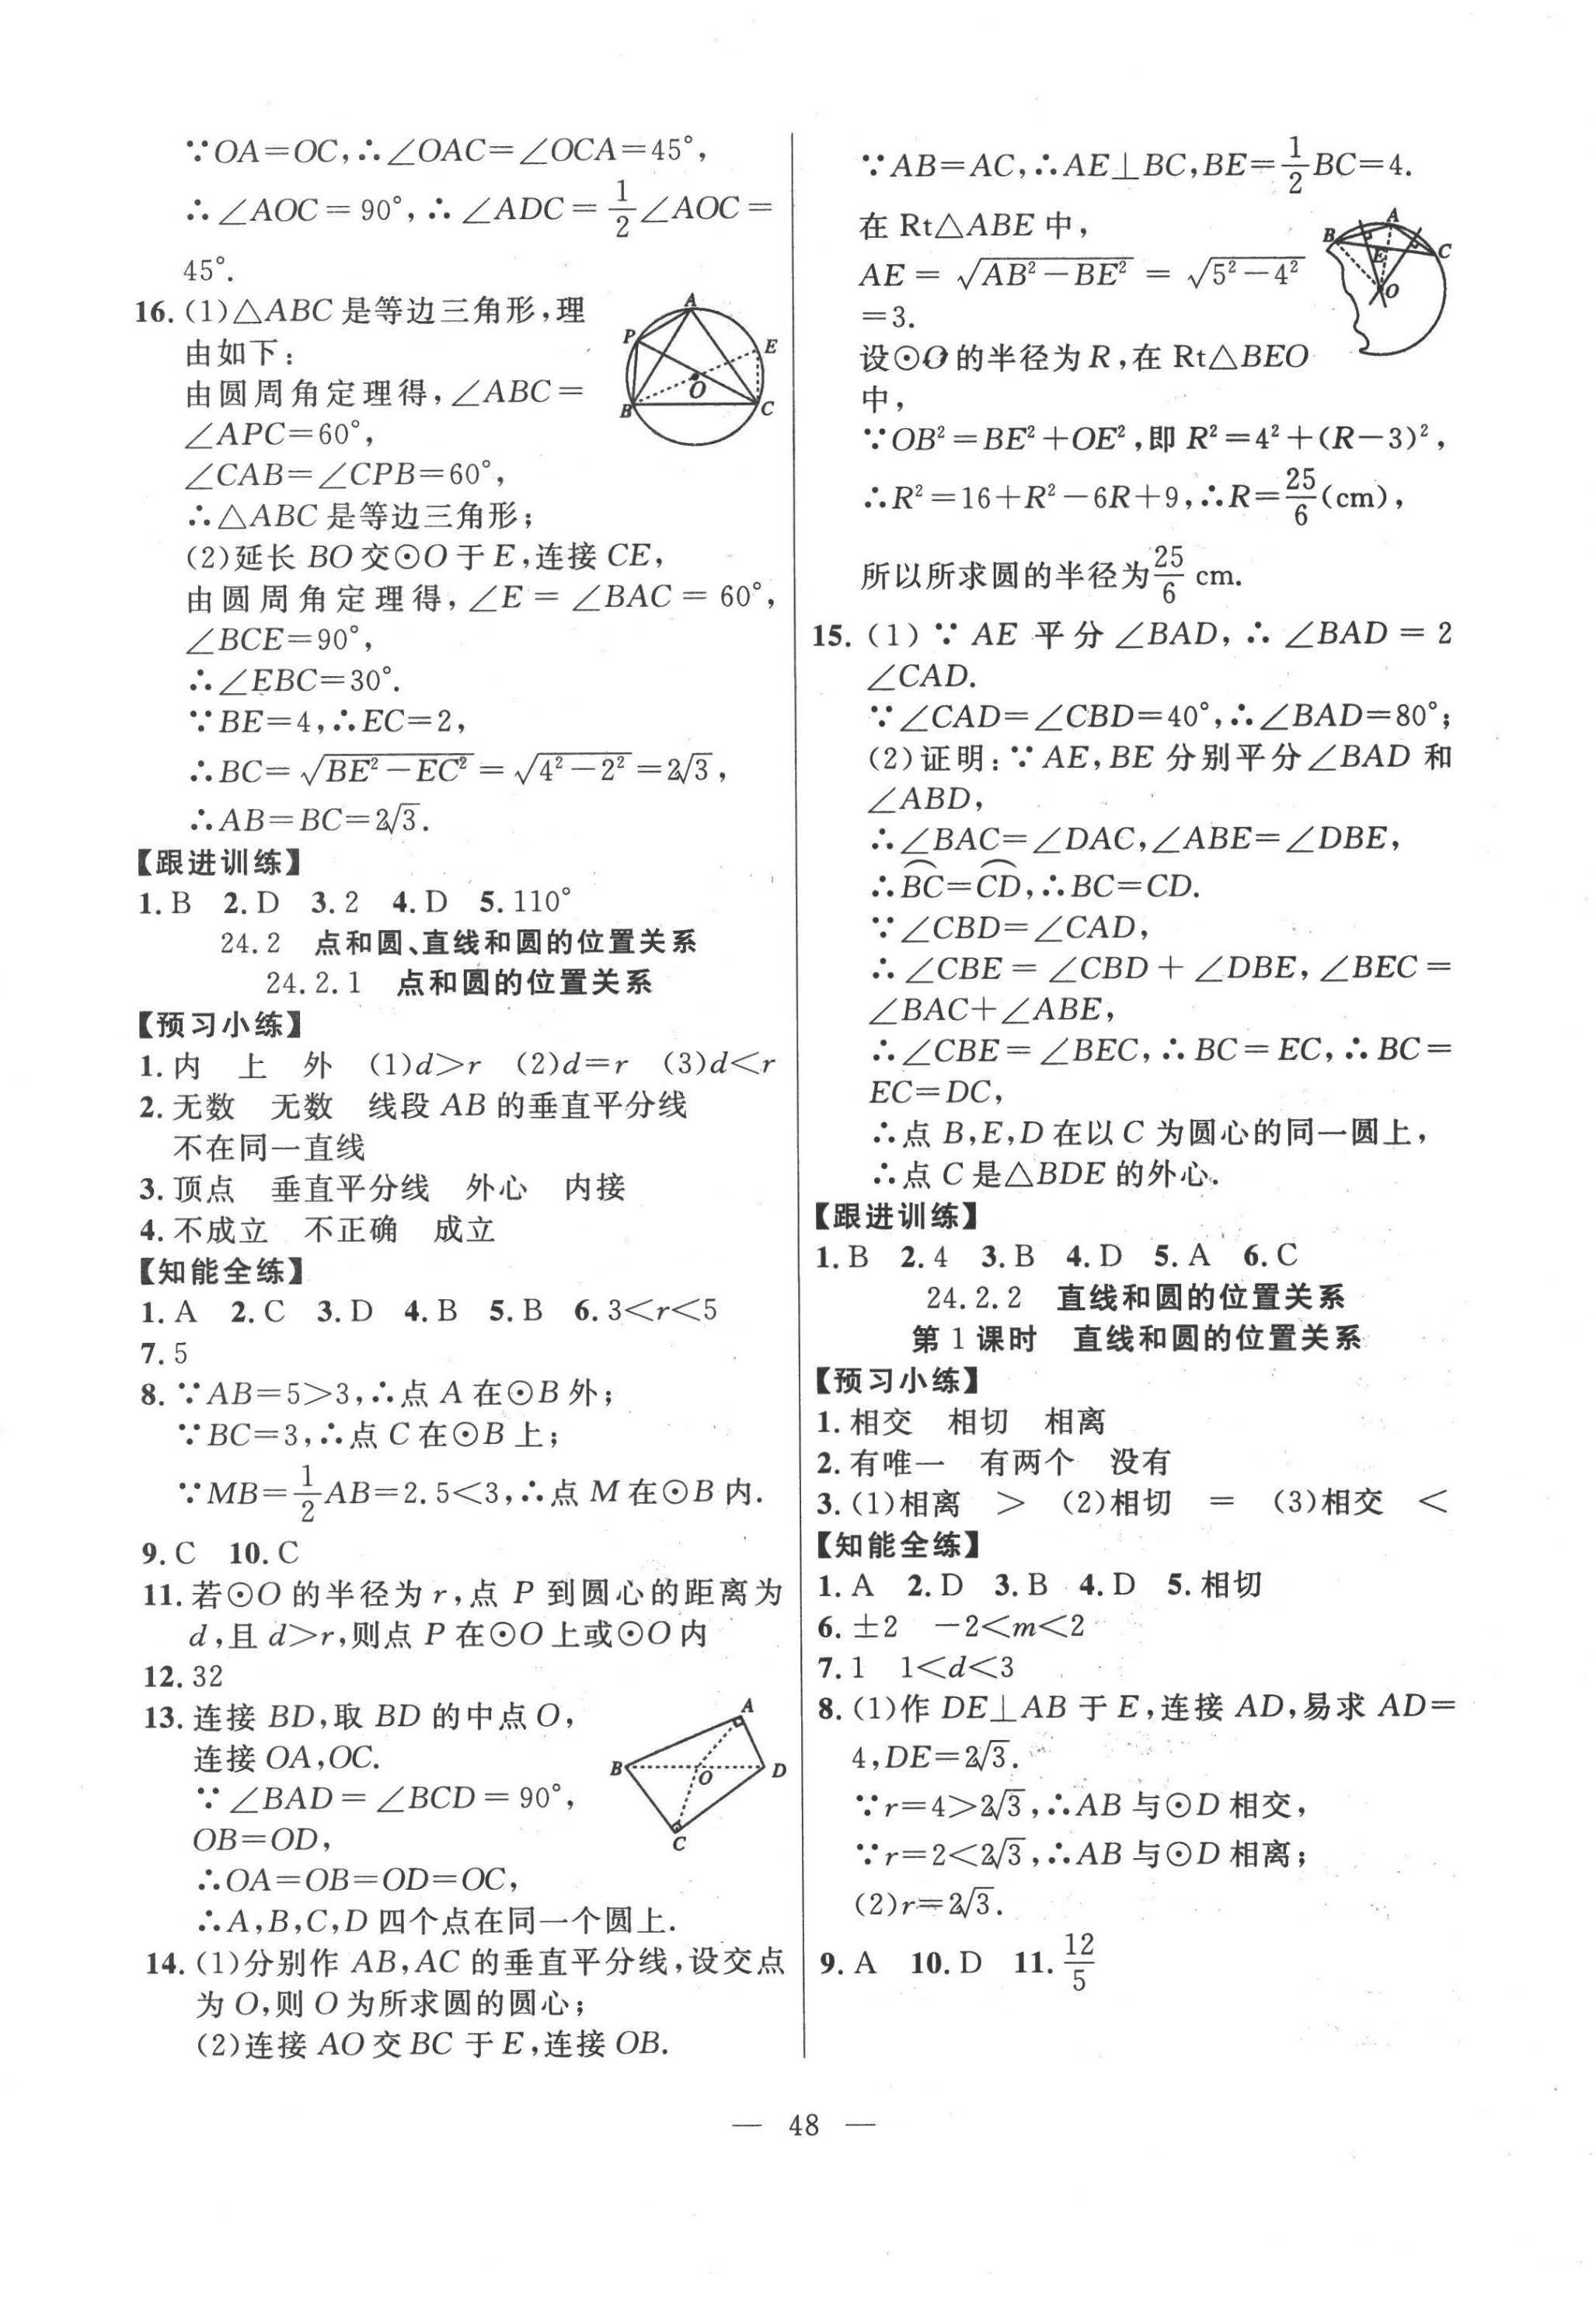 ∵OA=OC,∴∠OAC=∠OCA=45°,
∴∠AOC=90°,∴∠ADC=1/2∠AOC=
45°.
16.(1)△ABC是等边三角形,理
由如下:
由圆周角定理得,∠ABC=
∠APC=60°,
∠CAB=∠CPB=60°,
∴△ABC是等边三角形;
(2)延长BO交⊙O于E,连接CE,
由圆周角定理得,∠E=∠BAC=60°,
∠BCE=90°,
∴∠EBC=30°.
∵BE=4,∴EC=2,
∴BC=√(BE²-EC²)=√(4²-2²)=2√3,
∴AB=BC=2√3.
A
P
E
O
B
C
【跟进训练】
1.B 2.D 3.2 4.D 5.110°
24.2 点和圆、直线和圆的位置关系
24.2.1 点和圆的位置关系
【预习小练】
1.内 上 外 (1)d>r (2)d=r (3)d<r
2.无数 无数 线段AB的垂直平分线
不在同一直线
3.顶点 垂直平分线 外心 内接
4.不成立 不正确 成立
【知能全练】
1.A 2.C 3.D 4.B 5.B 6.3<r<5
7.5
8.∵AB=5>3,∴点A在⊙B外;
∵BC=3,∴点C在⊙B上;
∵MB=1/2AB=2.5<3,∴点M在⊙B内.
9.C 10.C
11.若⊙O的半径为r,点P到圆心的距离为
d,且d>r,则点P在⊙O上或⊙O内
12.32
13.连接BD,取BD的中点O,
连接OA,OC.
∵∠BAD=∠BCD=90°,
OB=OD,
∴OA=OB=OD=OC,
∴A,B,C,D四个点在同一个圆上.
A
B
O
D
C
14.(1)分别作AB,AC的垂直平分线,设交点
为O,则O为所求圆的圆心;
(2)连接AO交BC于E,连接OB.
∵AB=AC,∴AE⊥BC,BE=1/2BC=4.
在Rt△ABE中,
AE=√(AB²-BE²)=√(5²-4²)
=3.
设⊙O的半径为R,在Rt△BEO
中,
∵OB²=BE²+OE²,即R²=4²+(R-3)²,
∴R²=16+R²-6R+9,∴R=25/6(cm),
所以所求圆的半径为25/6 cm.
A
B
E
C
O
15.(1)∵AE平分∠BAD,∴∠BAD=2
∠CAD.
∵∠CAD=∠CBD=40°,∴∠BAD=80°;
(2)证明:∵AE,BE分别平分∠BAD和
∠ABD,
∴∠BAC=∠DAC,∠ABE=∠DBE,
∴⌒BC=⌒CD,∴BC=CD.
∵∠CBD=∠CAD,
∴∠CBE=∠CBD+∠DBE,∠BEC=
∠BAC+∠ABE,
∴∠CBE=∠BEC,∴BC=EC,∴BC=
EC=DC,
∴点B,E,D在以C为圆心的同一圆上,
∴点C是△BDE的外心.
【跟进训练】
1.B 2.4 3.B 4.D 5.A 6.C
24.2.2 直线和圆的位置关系
第1课时 直线和圆的位置关系
【预习小练】
1.相交 相切 相离
2.有唯一 有两个 没有
3.(1)相离 > (2)相切 = (3)相交 <
【知能全练】
1.A 2.D 3.B 4.D 5.相切
6.±2 -2<m<2
7.1 1<d<3
8.(1)作DE⊥AB于E,连接AD,易求AD=
4,DE=2√3.
∵r=4>2√3,∴AB与⊙D相交,
∵r=2<2√3,∴AB与⊙D相离;
(2)r=2√3.
9.A 10.D 11.12/5
— 48 —